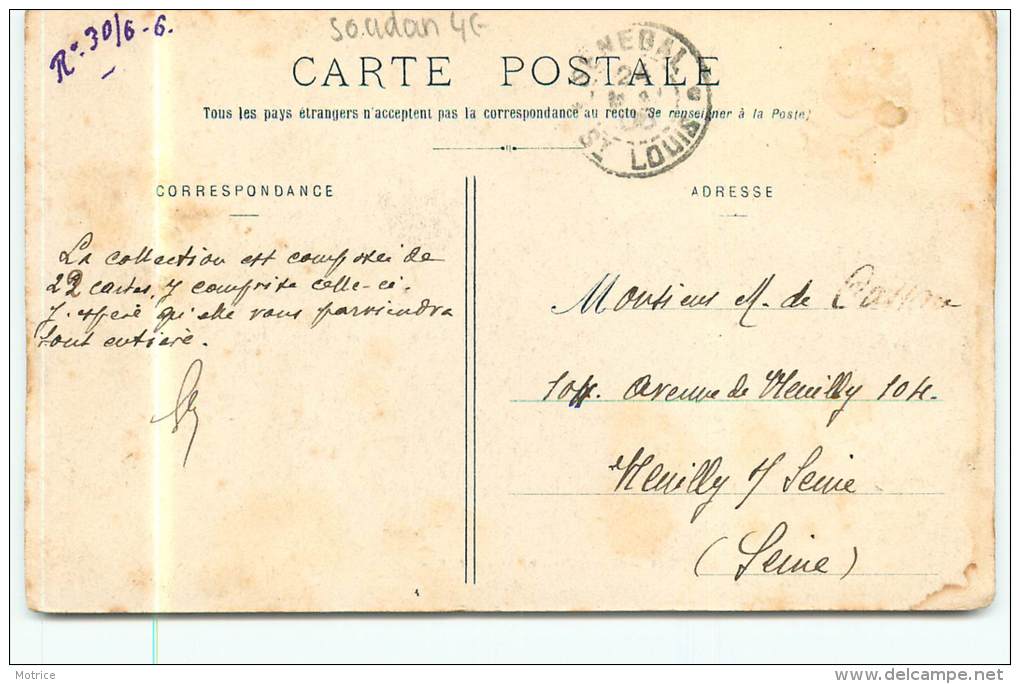 Rº. 30/6-6.
Soudan 4€
SENEGAL
ST LOUIS
CARTE POSTALE
Tous les pays étrangers n'acceptent pas la correspondance au recto (Se renseigner à la Poste)
CORRESPONDANCE
La collection est composée de
22 cartes, y comprise celle-ci.
J'espère qu'elle vous parviendra
tout entière.
ADRESSE
Monsieur M. de
104. Avenue de Neuilly 104.
Neuilly s/ Seine
(Seine)
Motrice
delcampe.net